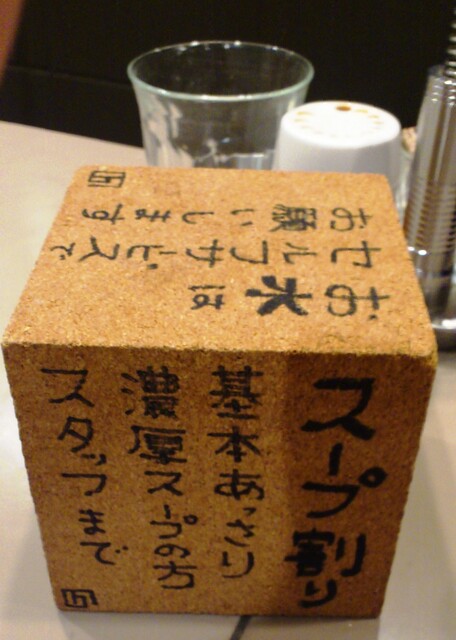 お水は
セルフサービスで
お願いします
スープ割り
基本あっさり
濃厚スープの方
スタッフまで